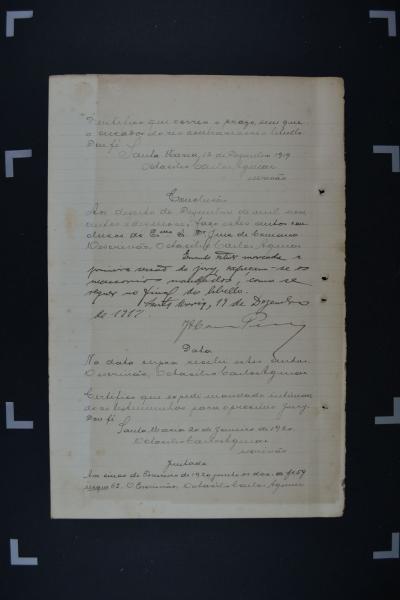 Certifico que correu o prazo, sem que
o curador do réo contrariasse o libello.
Dou fé.
Santa Maria, 18 de Dezembro 1919
Octacilio Carlos Aguiar
escrivão
Conclusão
Aos dezoito de Dezembro de mil nove
centos e dezenove, faço estes autos con
clusos ao Exmo Sr. Dr. Juiz de Comarca
O escrivão, Octacilio Carlos Aguiar
marcada a
primeira sessão do jury, expeçam-se os
necessarios mandados, como se
requer no final do libello.
Santa Maria, 18 de Dezembro
de 1919
Data
Na data supra recebi estes autos.
O escrivão, Octacilio Carlos Aguiar
Certifico que expedi mandado intiman
do as testemunhas para o proximo jury.
Dou fé.
Santa Maria 20 de Janeiro de 1920
Octacilio Carlos Aguiar
escrivão
Juntada
Aos cinco de Fevereiro de 1920 junto os docs. de fs 59
62. O Escrivão, Octacilio Carlos Aguiar